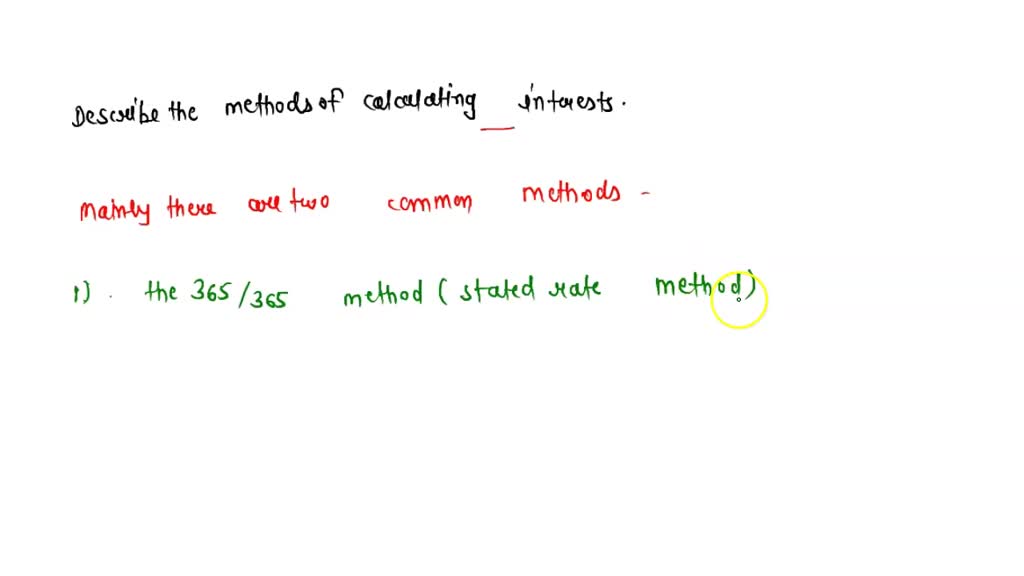 Describe the methods of calculating interests.
Mainly there are two common methods -
1). the 365/365 method (stated rate method)